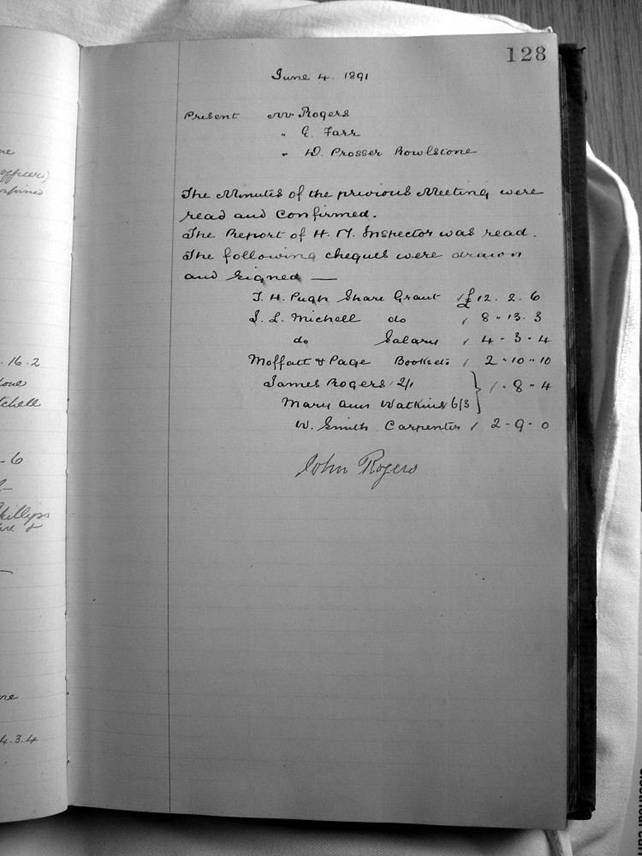 128
June 4. 1891
Present Mr Rogers
" E. Farr
" D. Prosser Rowlstone
The Minutes of the previous Meeting were
read and confirmed.
The Report of H. M. Inspector was read.
The following cheques were drawn
and signed —
T. H. Pugh Share Grant £12 . 2 . 6
S. L. Michell do 8 - 13 . 3
do Salary 4 - 3 - 4
Moffatt & Page Books 2 - 10 - 10
James Rogers 2/1
Mary Ann Watkins 6/3 } - 8 - 4
W. Smith Carpenter 2 - 9 - 0
John Rogers
officer)
. 16 . 2
tchell
- 6
hillips
4 . 3 . 4